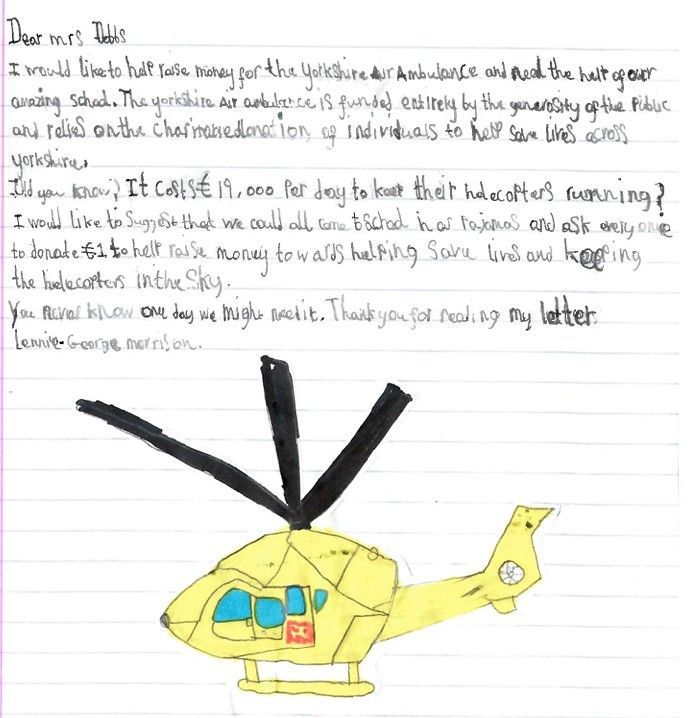 Dear mrs Dobbs
I would like to help raise money for the Yorkshire Air Ambulance and need the help of our
amazing school. The yorkshire Air ambulance is funded entirely by the generosity of the Public
and relies on the of individuals to help save lives across
yorkshire.
Did you know? It costs € 19,000 Per day to keep their helecopters running?
I would like to Suggest that we could all come school in our Pajamas and ask every one
to donate €1 to help raise money to wards helping Save lives and keeping
the helecopters in the Sky.
You never know one day we might need it. Thank you for reading my letter.
Lennie-George morrison.